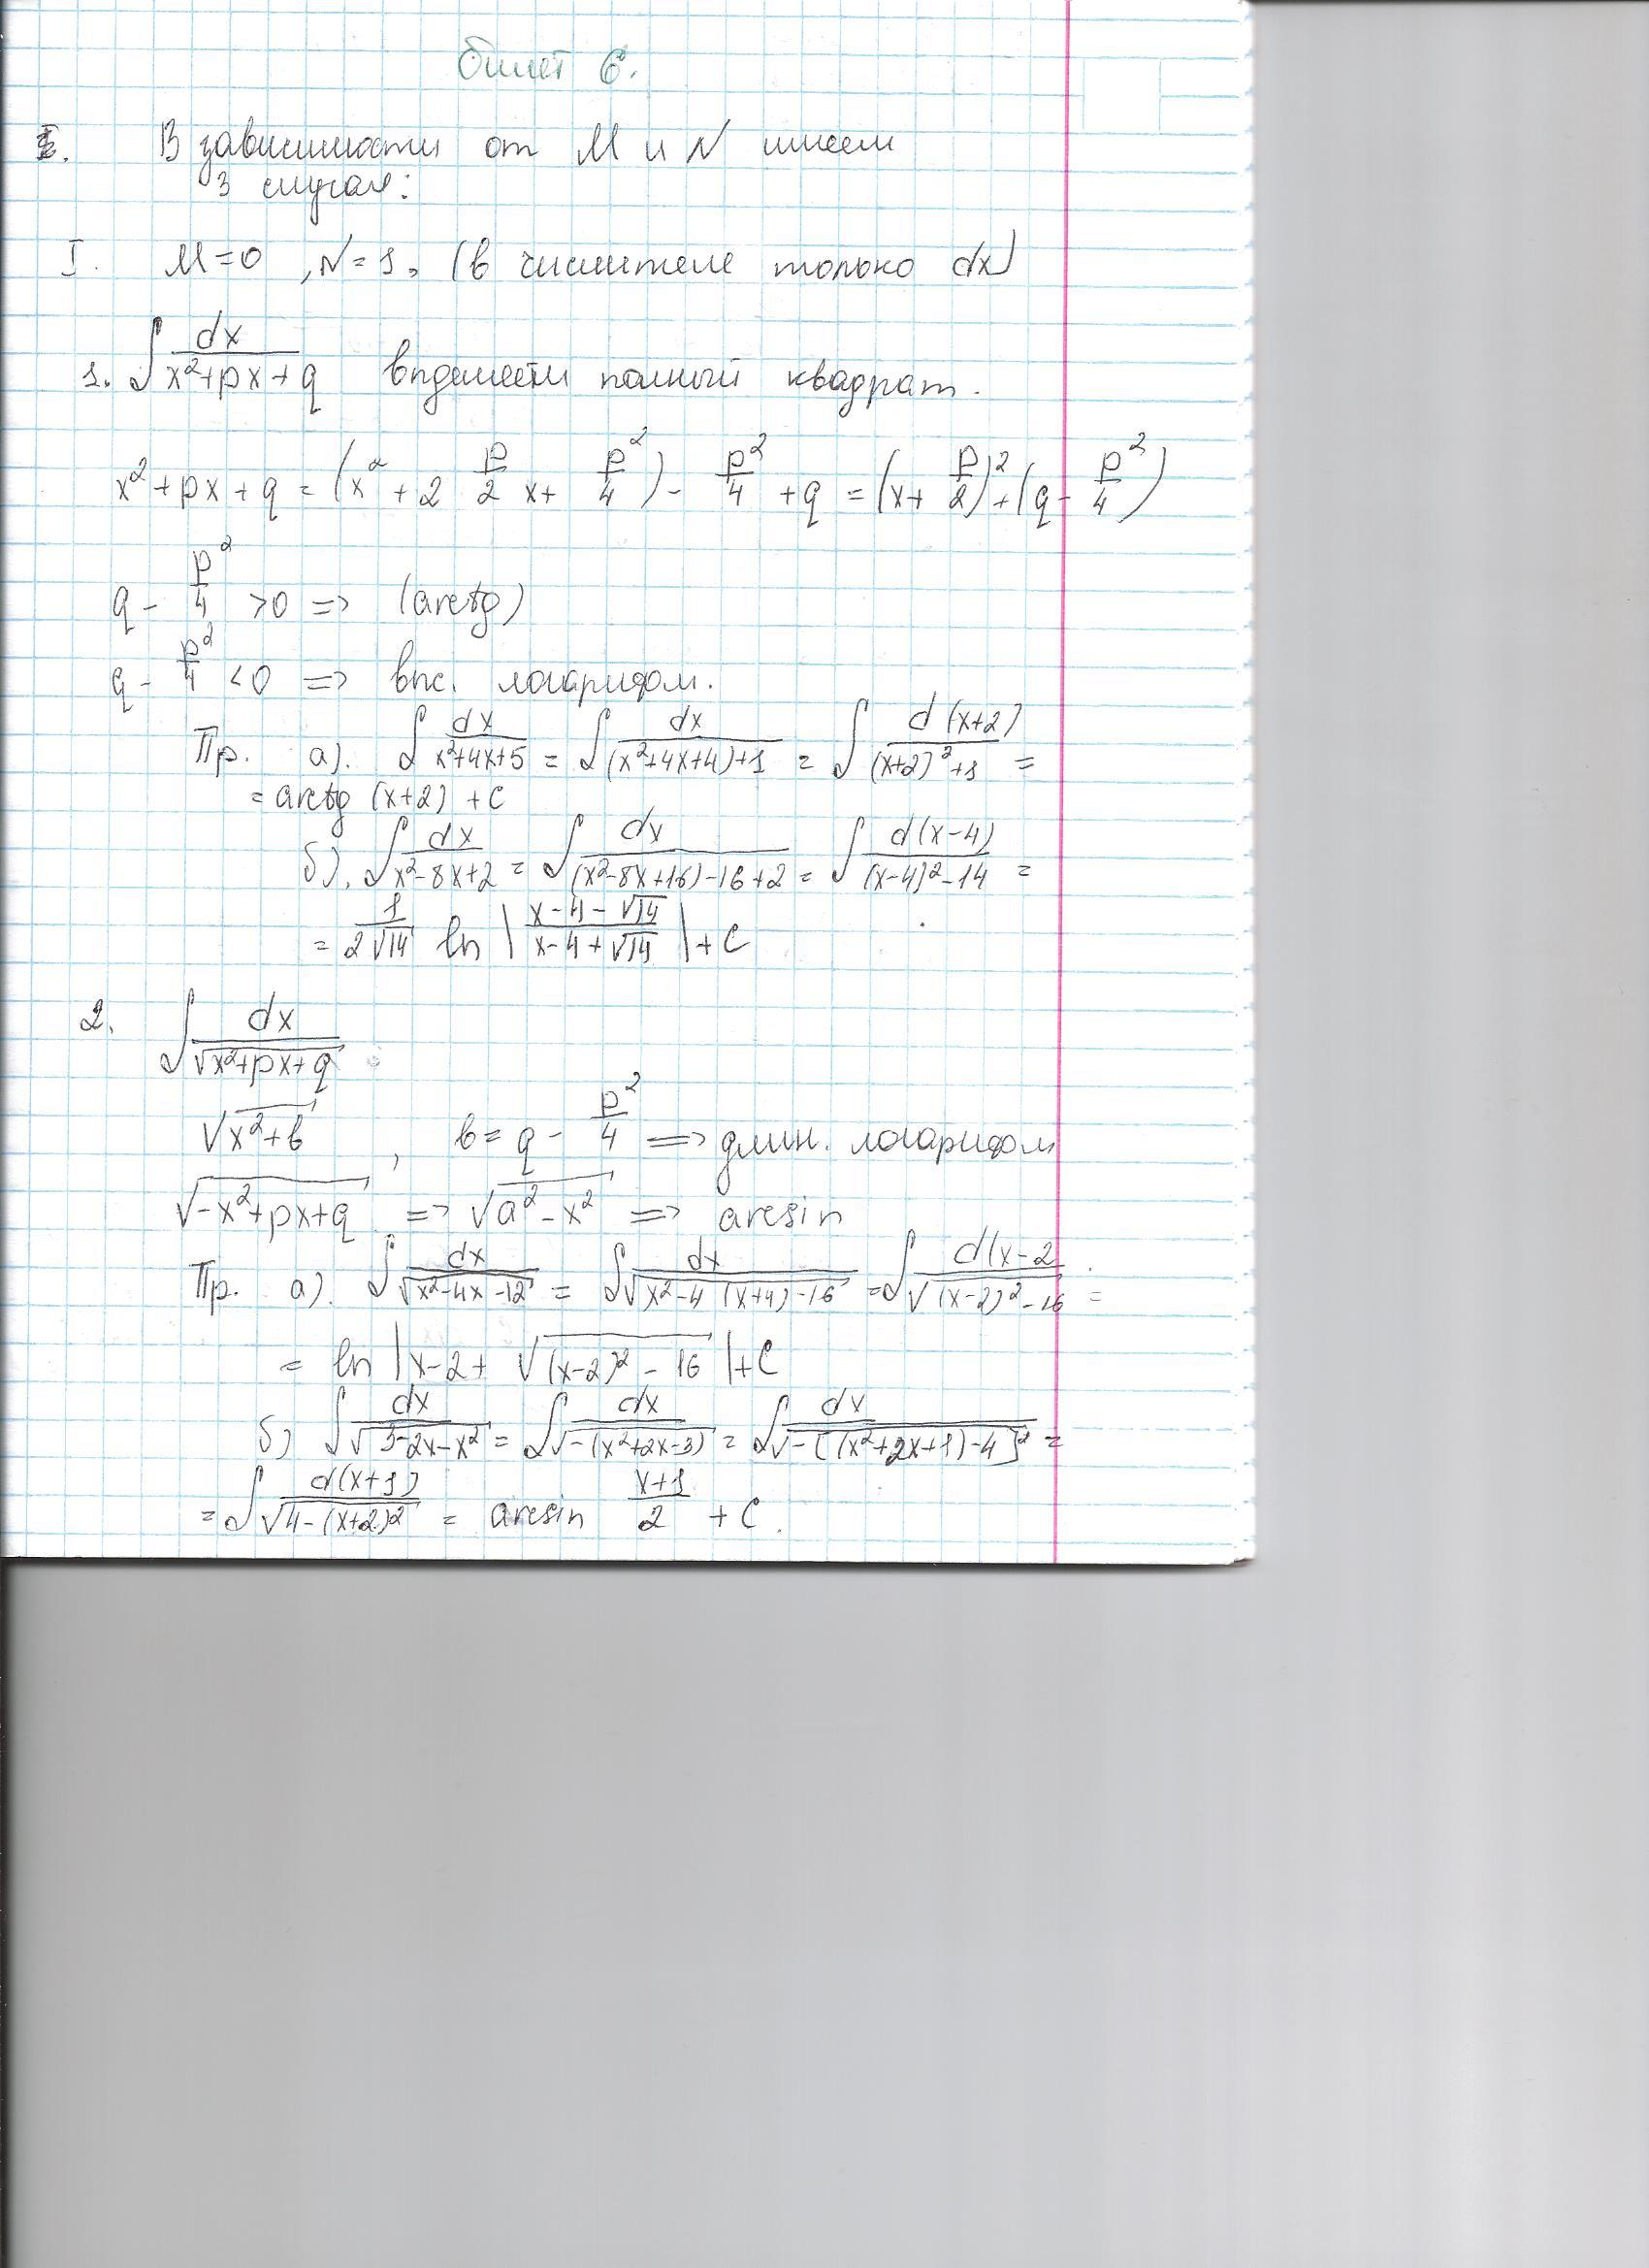 билет 6.
I. В зависимости от M и N имеем
3 случая:
I. M=0, N=1, (в числителе только dx)
1. ∫ dx/(x²+px+q) выделяем полный квадрат.
x²+px+q = (x² + 2 p/2 x + p²/4) - p²/4 + q = (x + p/2)² + (q - p²/4)
q - p²/4 >0 => (arctg)
q - p²/4 <0 => выс. логарифм.
Пр. а). ∫ dx/(x²+4x+5) = ∫ dx/((x²+4x+4)+1) = ∫ d(x+2)/((x+2)²+1) =
= arctg (x+2) + C
б). ∫ dx/(x²-8x+2) = ∫ dx/((x²-8x+16)-16+2) = ∫ d(x-4)/((x-4)²-14) =
= 1/(2√14) ln |(x-4-√14)/(x-4+√14)| + C
2. ∫ dx/√(x²+px+q)
√(x²+b) , b = q - p²/4 => длин. логарифм
√(-x²+px+q) => √(a²-x²) => arcsin
Пр. а). ∫ dx/√(x²-4x-12) = ∫ dx/√(x²-4(x+4)-16) = ∫ d(x-2/√((x-2)²-16 =
= ln |x-2+ √((x-2)²-16)| + C
б) ∫ dx/√(3-2x-x²) = ∫ dx/√(-(x²+2x-3)) = ∫ dx/√(-[(x²+2x+1)-4]² =
= ∫ d(x+1)/√(4-(x+2)²) = arcsin (x+1)/2 + C.